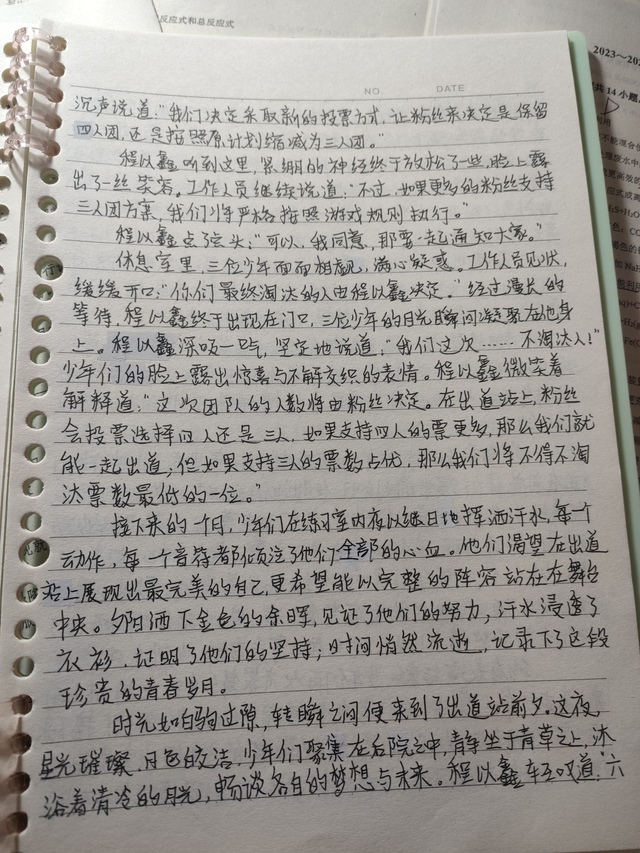 反应式和总反应式
2023～202
共14小题
NO. DATE
沉声说道:"我们决定采取新的投票方式,让粉丝来决定是保留
四人团,还是按照原计划缩减为三人团。"
程以鑫听到这里,紧绷的神经终于放松了一些,脸上露
出了一丝笑容。工作人员继续说道:"不过,如果更多的粉丝支持
三人团方案,我们将严格按照游戏规则执行。"
程以鑫点了点头:"可以,我同意,那要一起通知大家。"
休息室里,三位少年面面相觑,满心疑惑。工作人员见状,
缓缓开口:"你们最终淘汰的人由程以鑫决定。"经过漫长的
等待,程以鑫终于出现在门口,三位少年的目光瞬间凝聚在他身
上。程以鑫深吸一口气,坚定地说道:"我们这次……不淘汰人!"
少年们的脸上露出惊喜与不解交织的表情。程以鑫微笑着
解释道:"这次团队的人数将由粉丝决定。在出道站上,粉丝
会投票选择四人还是三人,如果支持四人的票更多,那么我们就
能一起出道;但如果支持三人的票数占优,那么我们将不得不淘
汰票数最低的一位。"
接下来的一个月,少年们在练习室内夜以继日地挥洒汗水,每个
动作,每一个音符都倾注了他们全部的心血。他们渴望在出道
站上展现出最完美的自己,更希望能以完整的阵容站在在舞台
中央。夕阳洒下金色的余晖,见证了他们的努力;汗水浸透了
衣衫,证明了他们的坚持;时间悄然流逝,记录下了这段
珍贵的青春岁月。
时光如白驹过隙,转瞬之间便来到了出道站前夕。这夜,
星光璀璨,月色皎洁,少年们聚集在后院之中,静坐于青草之上,沐
浴着清冷的月光,畅谈各自的梦想与未来。程以鑫轻叹道:"六